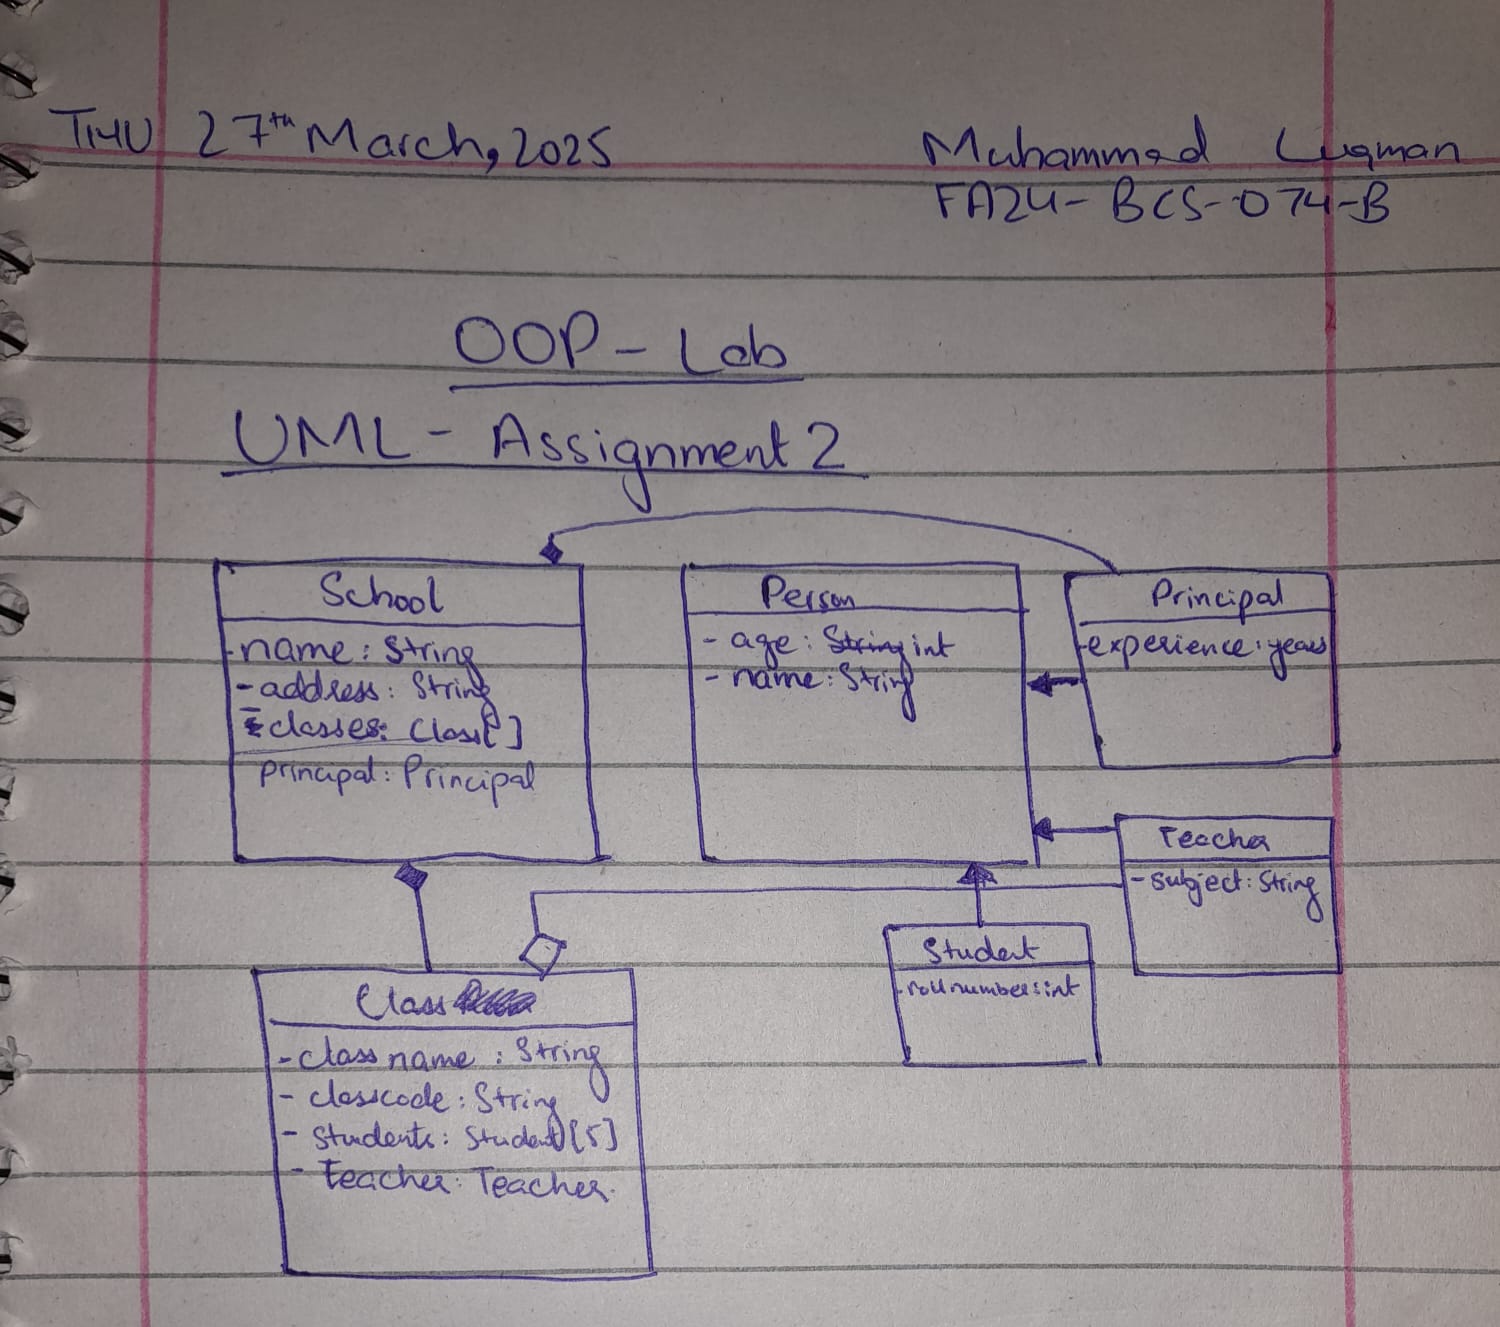 THU 27th March, 2025
Muhammad Luqman
FA24-BCS-074-B
OOP-Lab
UML-Assignment 2
School
-name: String
-address: String
-classes: Class[]
principal: Principal
Person
- age: String int
- name: String
Principal
-experience: years
Teacher
-subject: String
Student
-rollnumber: int
Class
-class name : String
- classcode: String
- students: Student[5]
- teacher: Teacher.